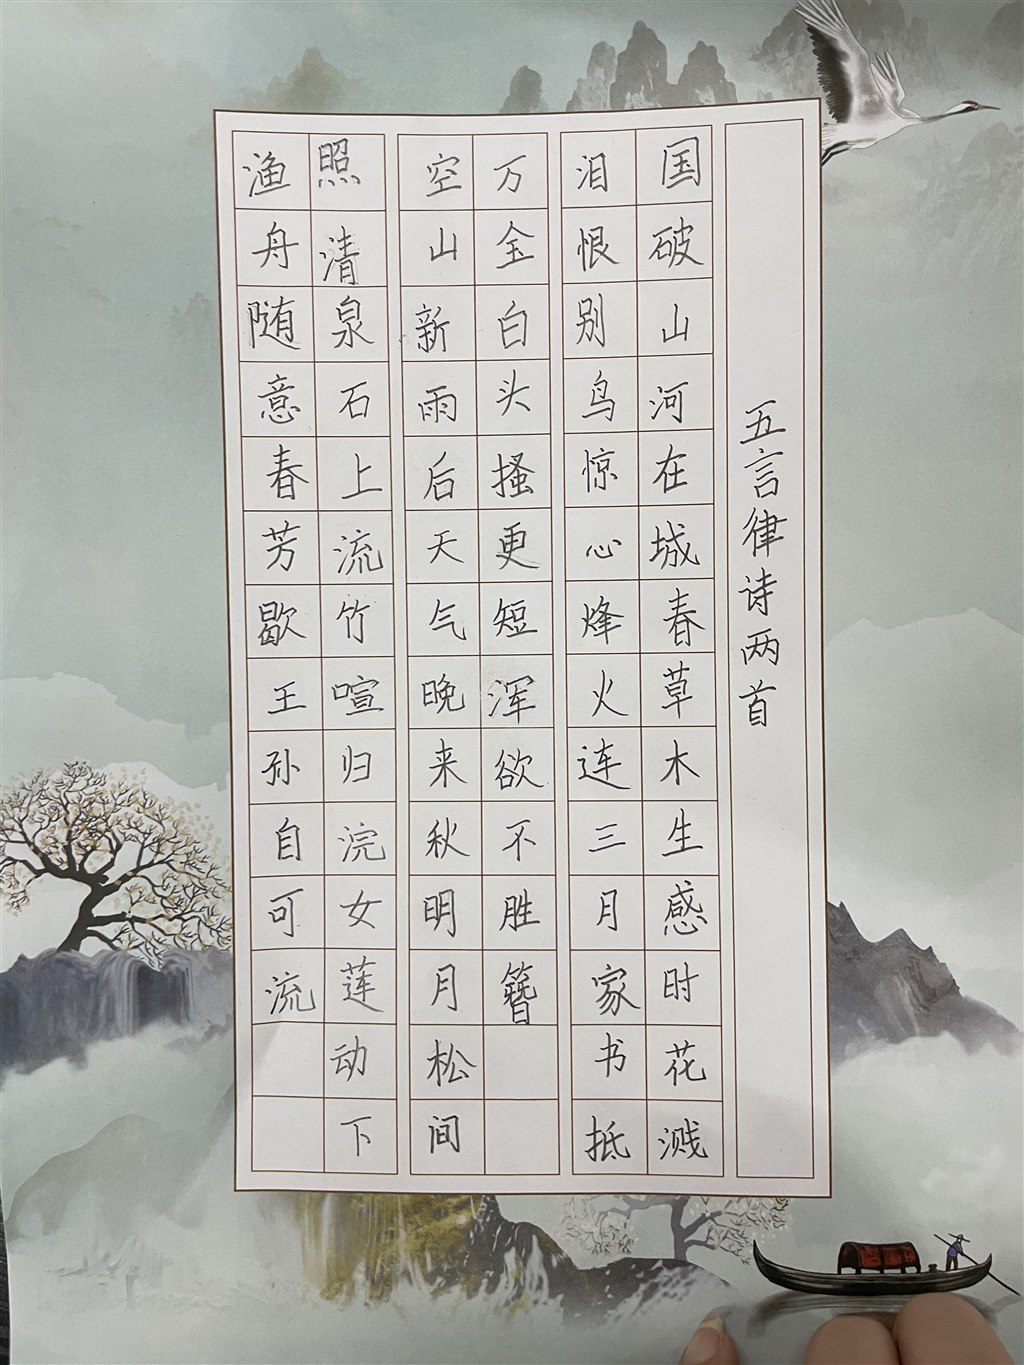 五言律诗两首
国破山河在城春草木生感时花溅
泪恨别鸟惊心烽火连三月家书抵
万金白头搔更短浑欲不胜簪
空山新雨后天气晚来秋明月松间
照清泉石上流竹喧归浣女莲动下
渔舟随意春芳歇王孙自可流